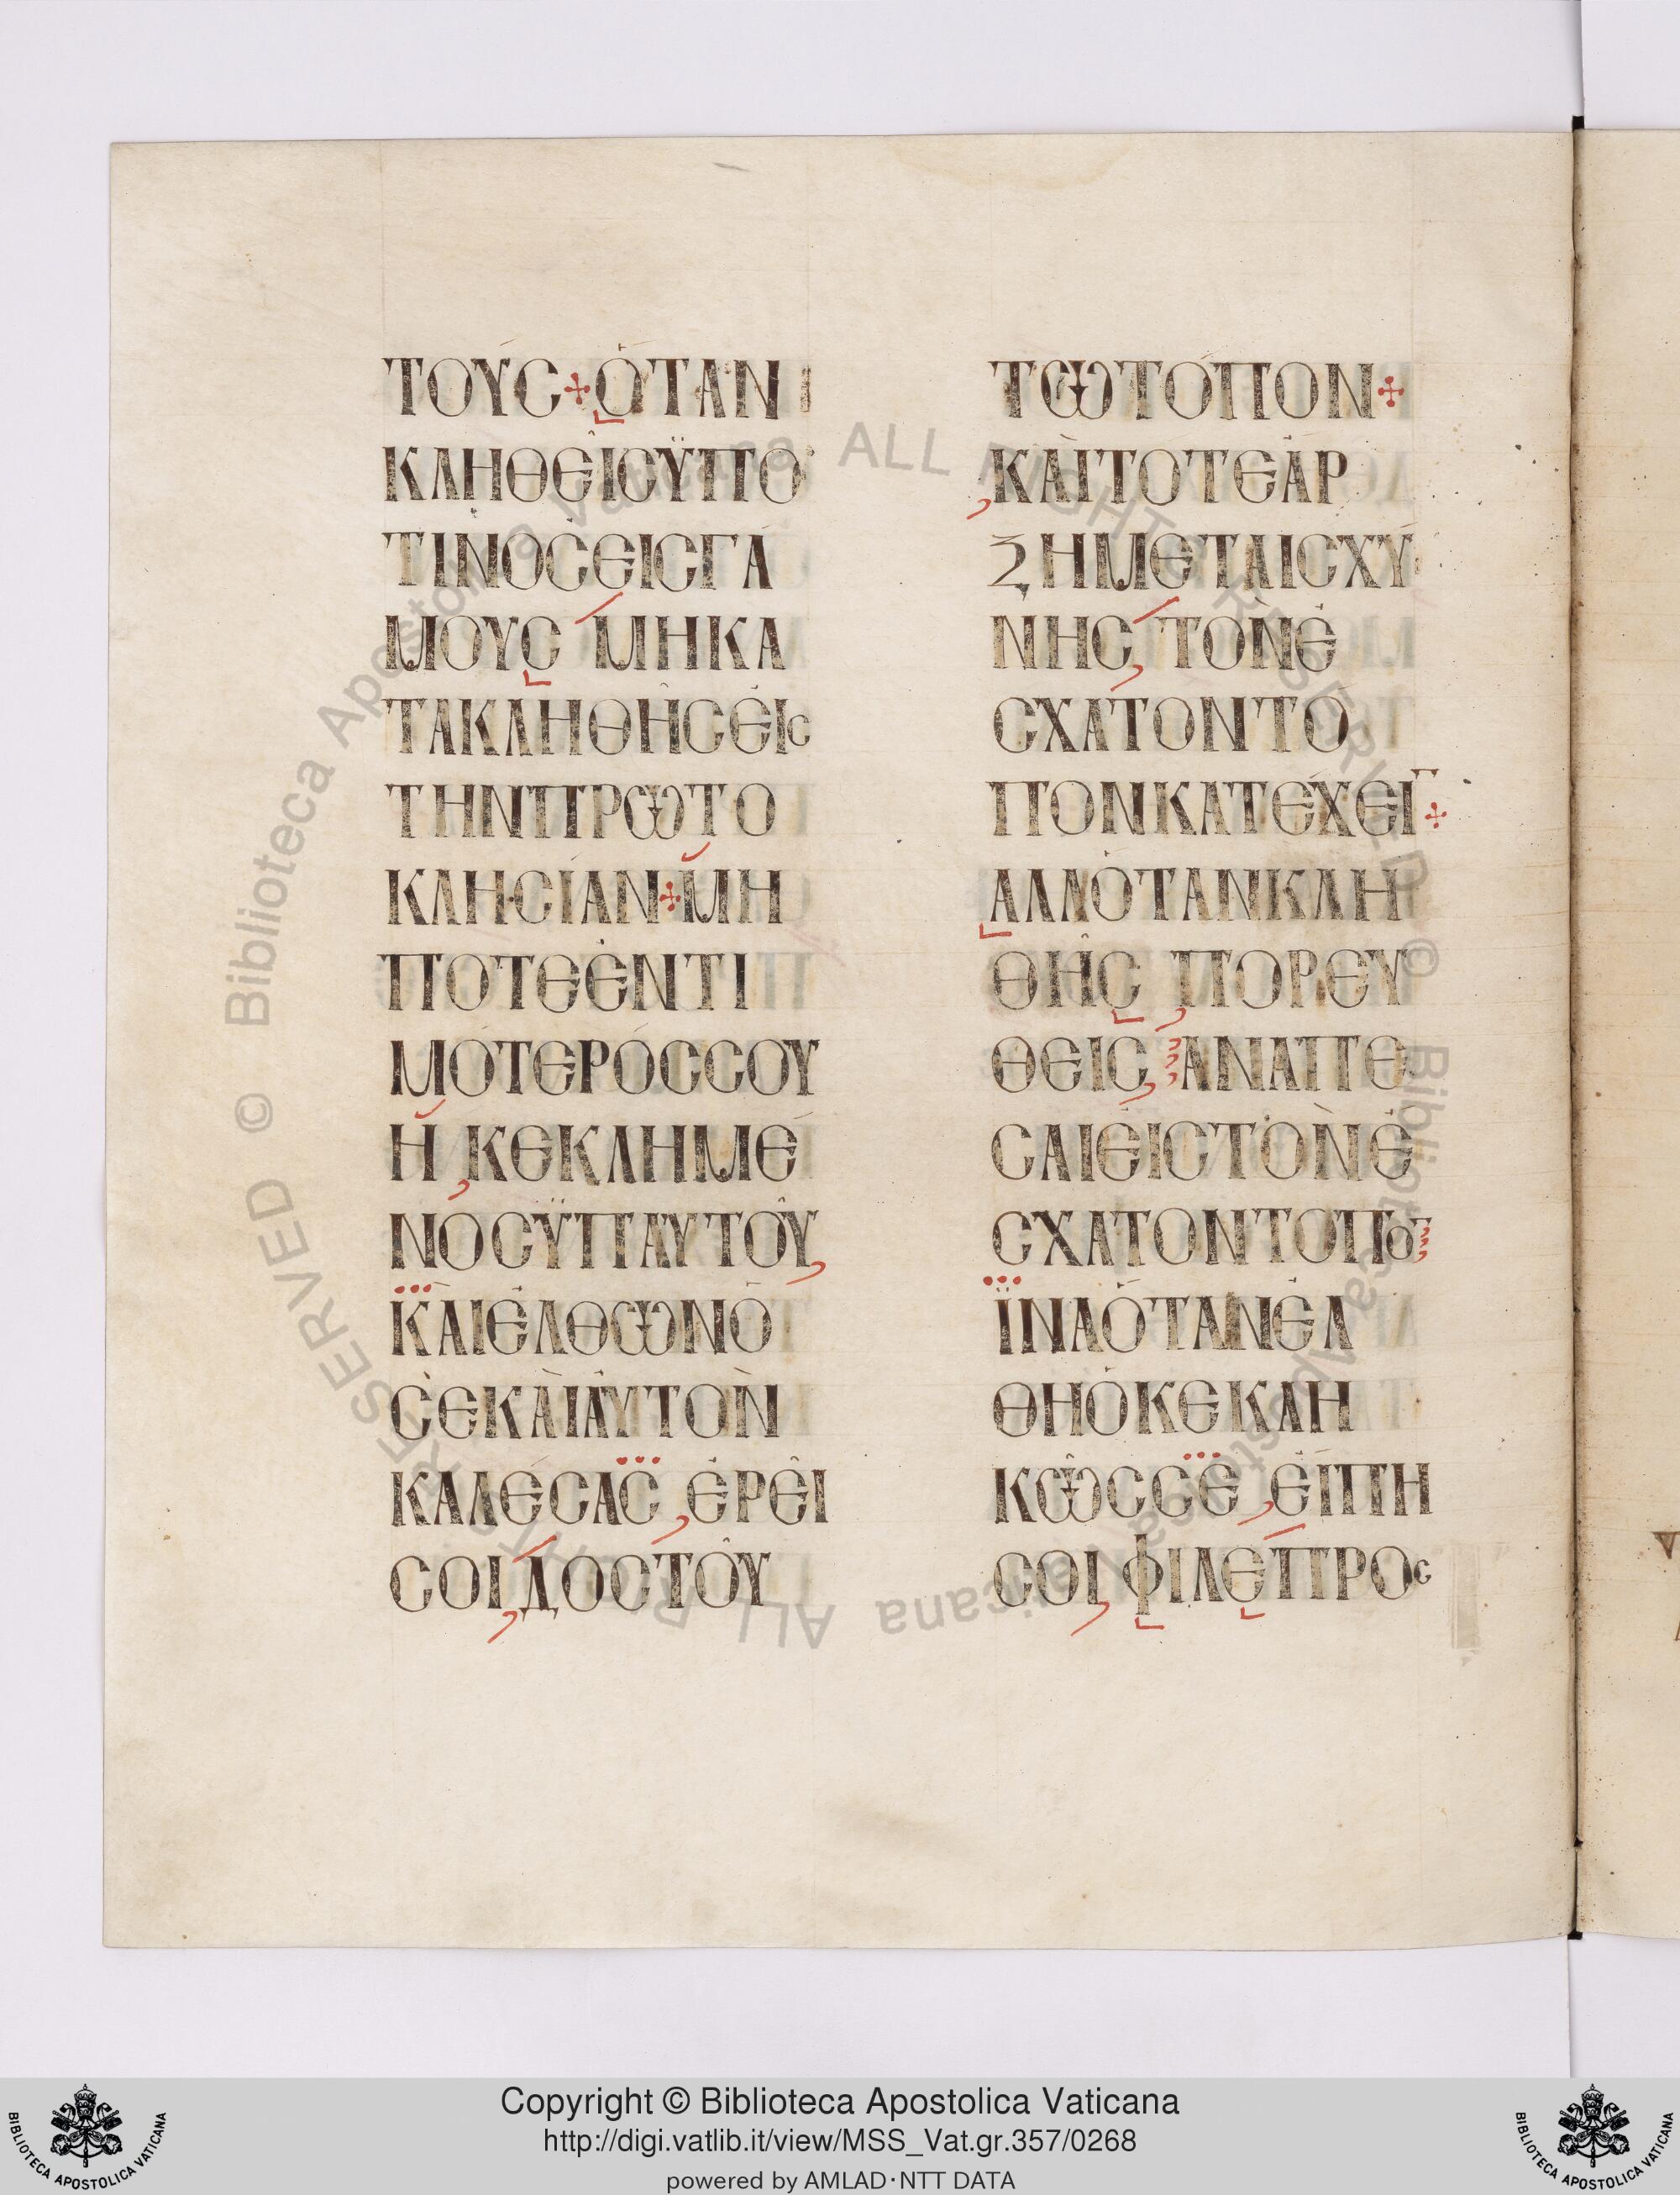 ΤΟΥϹ⁘ὉΤΑΝ
ΚΛΗΘΕῖϹΫΠΟ
ΤΙΝΟϹΕΙϹΓΑ
ΜΟΥϹ ΜΗΚΑ
ΤΑΚΛΗΘΗϹΕΙϹ
ΤΗΝΠΡΩΤΟ
ΚΛΗϹΙΑΝ⁘ΜΗ
ΠΟΤΕΕΝΤΙ
ΜΟΤΕΡΟϹϹΟΥ
Η ΚΕΚΛΗΜΕ
ΝΟϹΫΠΑΥΤΟΥ
ΚΑΙΕΛΘΩΝΟ
ϹΕΚΑΙΑΥΤΟΝ
ΚΑΛΕϹΑϹ ΕΡΕΙ
ϹΟΙ ΔΟϹΤΟΥ
ΤΩΤΟΠΟΝ⁘
ΚΑΙΤΟΤΕΑΡ
ΞΗΜΕΤΑΙϹΧΥ
ΝΗϹ ΤΟΝΕ
ϹΧΑΤΟΝΤΟ
ΠΟΝΚΑΤΕΧΕῙ⁘
ΑΛΛΟΤΑΝΚΛΗ
ΘΗϹ ΠΟΡΕΥ
ΘΕΙϹ ΑΝΑΠΕ
ϹΑΙΕΙϹΤΟΝΕ
ϹΧΑΤΟΝΤΟΠΟ̄
ΪΝΑΟΤΑΝΕΛ
ΘΗΟΚΕΚΛΗ
ΚΩϹϹΕ ΕΙΠΗ
ϹΟΙ ΦΙΛΕΠΡΟϹ
© Biblioteca Apostolica Vaticana ALL RIGHTS RESERVED © Biblioteca Apostolica Vaticana ALL RIGHTS RESERVED
Copyright © Biblioteca Apostolica Vaticana
http://digi.vatlib.it/view/MSS_Vat.gr.357/0268
powered by AMLAD･NTT DATA
BIBLIOTECA APOSTOLICA VATICANA
BIBLIOTECA APOSTOLICA VATICANA